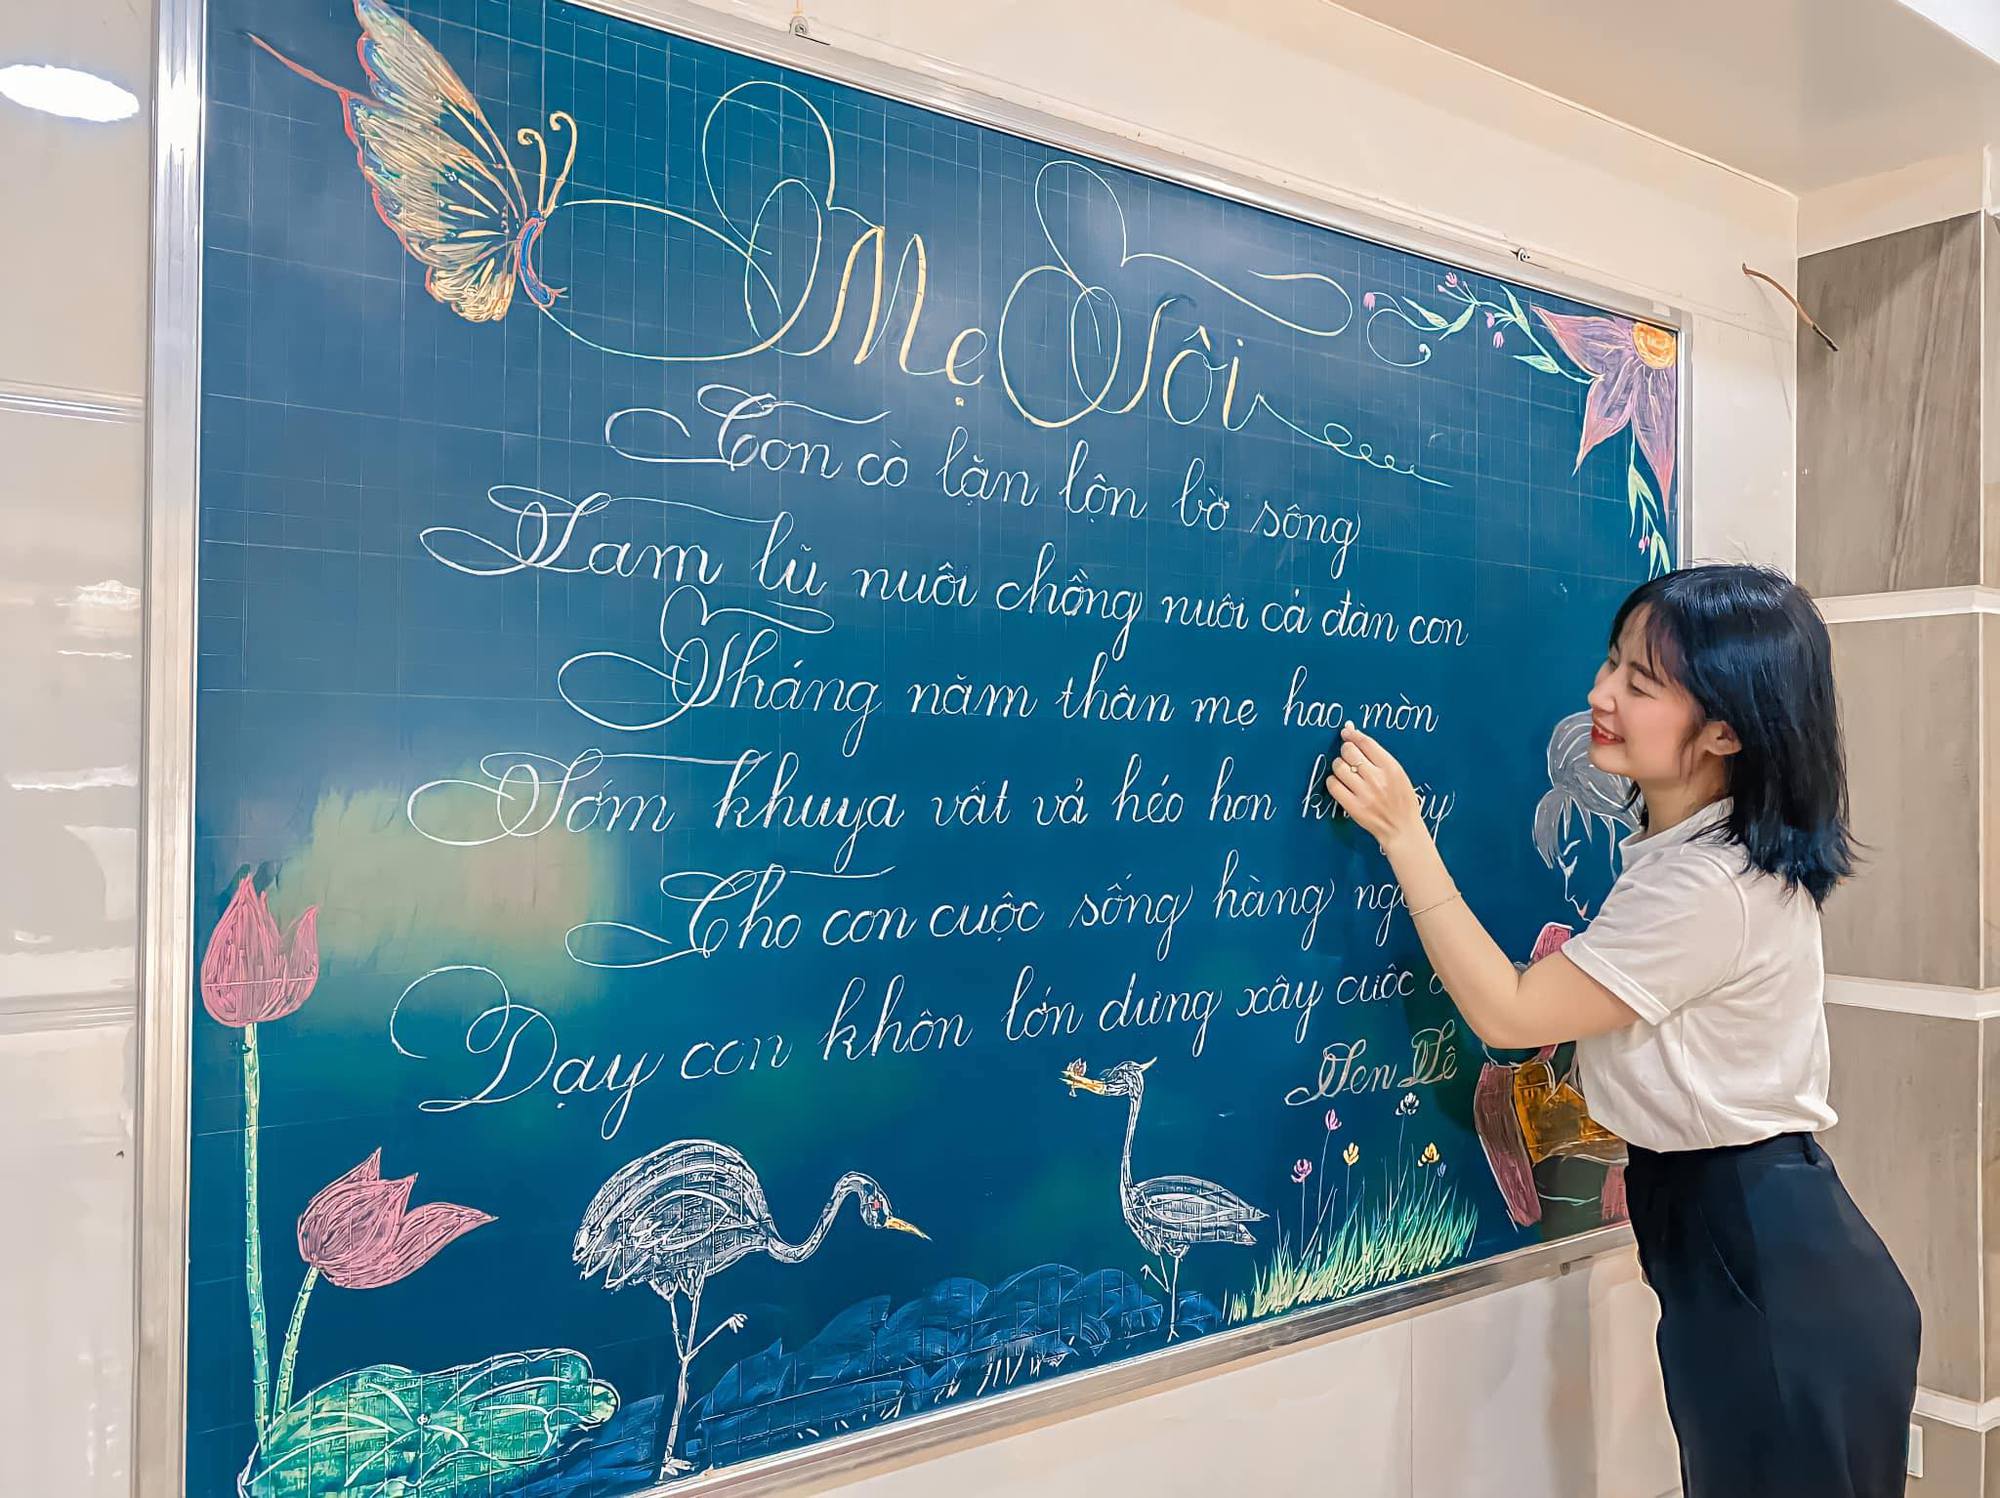 Mẹ Tôi
Con cò lặn lộn bờ sông
Lam lũ nuôi chồng nuôi cả đàn con
Tháng năm thân mẹ hao mòn
Sớm khuya vất vả héo hon
Cho con cuộc sống hàng
Dạy con khôn lớn dưng xây cuộc
Sen Lê